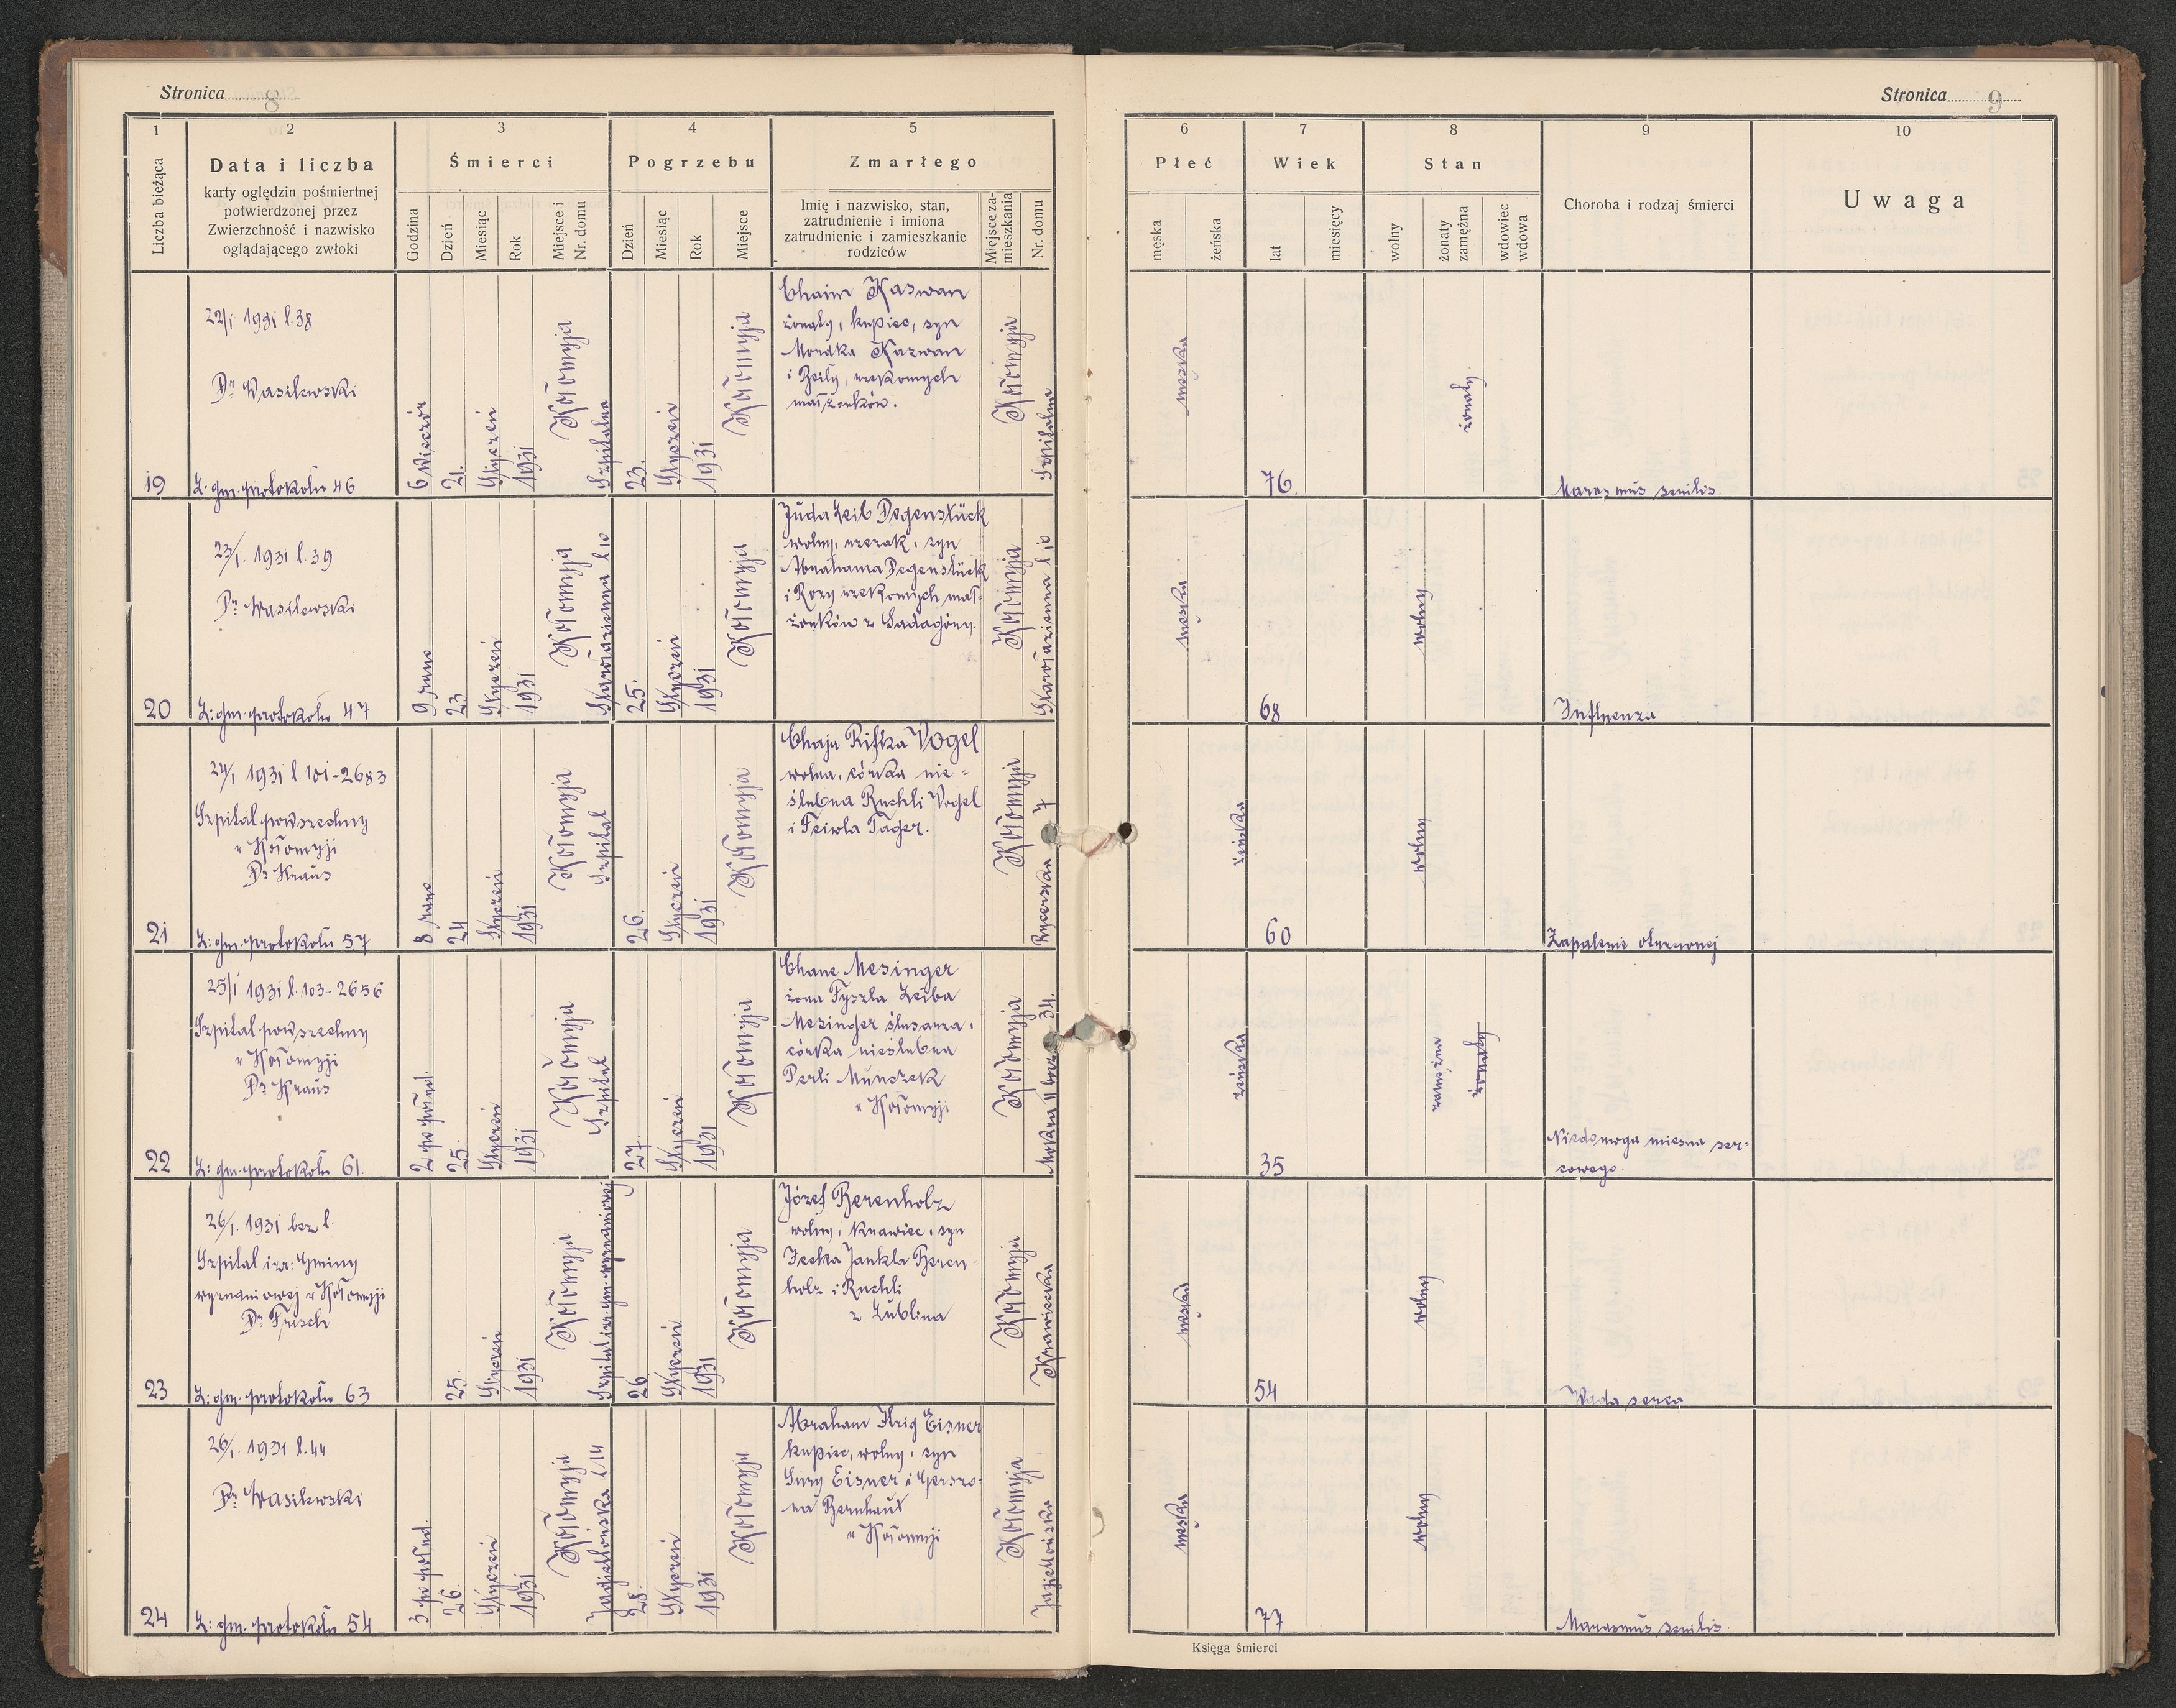 Stronica 8
1
2
3
4
5
Liczba bieżąca
Data i liczba
karty oględzin pośmiertnej
potwierdzonej przez
Zwierzchność i nazwisko
oglądającego zwłoki
Śmierci
Godzina
Dzień
Miesiąc
Rok
Miejsce i
Nr. domu
Pogrzebu
Dzień
Miesiąc
Rok
Miejsce
Zmarłego
Imię i nazwisko, stan,
zatrudnienie i imiona
zatrudnienie i zamieszkanie
rodziców
Miejsce za-
mieszkania
Nr. domu
19
22/I 1931 l. 38
Dr Wasilewski
L: gm. protokołu 46
6 wieczór
21.
Styczeń
1931
Kołomyja
Szpitalna
23.
Styczeń
1931
Kołomyja
Chaim Kaswan
żonaty, kupiec, syn
Mordka Kazwan
i Beily, rzekomych
małżonków.
Kołomyja
Szpitalna
20
23/I. 1931 l. 39
Dr Wasilewski
L: gm. protokołu 47
9 rano
23
Styczeń
1931
Kołomyja
l 10
25.
Styczeń
1931
Kołomyja
Juda Leib Degenstück
wolny, syn
Abrahama Degenstück
i Rozy rzekomych mał-
żonków z Sadagóry.
Kołomyja
l 10
21
24/I 1931 l. 101-2683
Szpital powszechny
w Kołomyji
Dr Kraus
L: gm. protokołu 57
8 rano
24
Styczeń
1931
Kołomyja
Szpital
26.
Styczeń
1931
Kołomyja
Chaja Rifka Vogel
wolna, córka nie-
ślubna Ruchli Vogel
i Feiwla Tager.
Kołomyja
Rycerska 7
22
25/I 1931 l. 103-2656
Szpital powszechny
w Kołomyji
Dr Kraus
L: gm. protokołu 61.
2 po połud.
25.
Styczeń
1931
Kołomyja
Szpital
27.
Styczeń
1931
Kołomyja
Chane Mesinger
żona Leiba
Mesinger ślusarza,
córka nieślubna
Perli Munczek
w Kołomyji
Kołomyja
Mokra II 34.
23
26/I. 1931 bez l.
Szpital izr: Gminy
wyznaniowej w Kołomyji
Dr Frisch
L: gm. protokołu 63
25.
Styczeń
1931
Kołomyja
Szpital izr. gm. wyznaniowej
26
Styczeń
1931
Kołomyja
Józef Berenholz
wolny, krawiec, syn
Icchka Jankla Beren-
holz i Ruchli
z Lublina
Kołomyja
Krawiecka
24
26/I. 1931 l. 44
Dr Wasilewski
L: gm. protokołu 54
3 po połud.
26.
Styczeń
1931
Kołomyja
Jagiellońska l 14
28.
Styczeń
1931
Kołomyja
Abraham Eisner
kupiec, wolny, syn
Sury Eisner i Gerszo-
na Bernhaut
w Kołomyji
Kołomyja
Jagiellońska
Stronica 9
6
7
8
9
10
Płeć
męska
żeńska
Wiek
lat
miesięcy
Stan
wolny
żonaty
zamężna
wdowiec
wdowa
Choroba i rodzaj śmierci
Uwaga
męska
76.
żonaty
Marazmus senilis
męska
68
wolny
Influenza
żeńska
60
wolny
Zapalenie otrzewnej
żeńska
35
zamężna
żonaty
Niedomoga mięśna ser-
cowego.
męska
54
wolny
Wada serca
męska
77
wolny
Marasmus senilis.
Księga śmierci